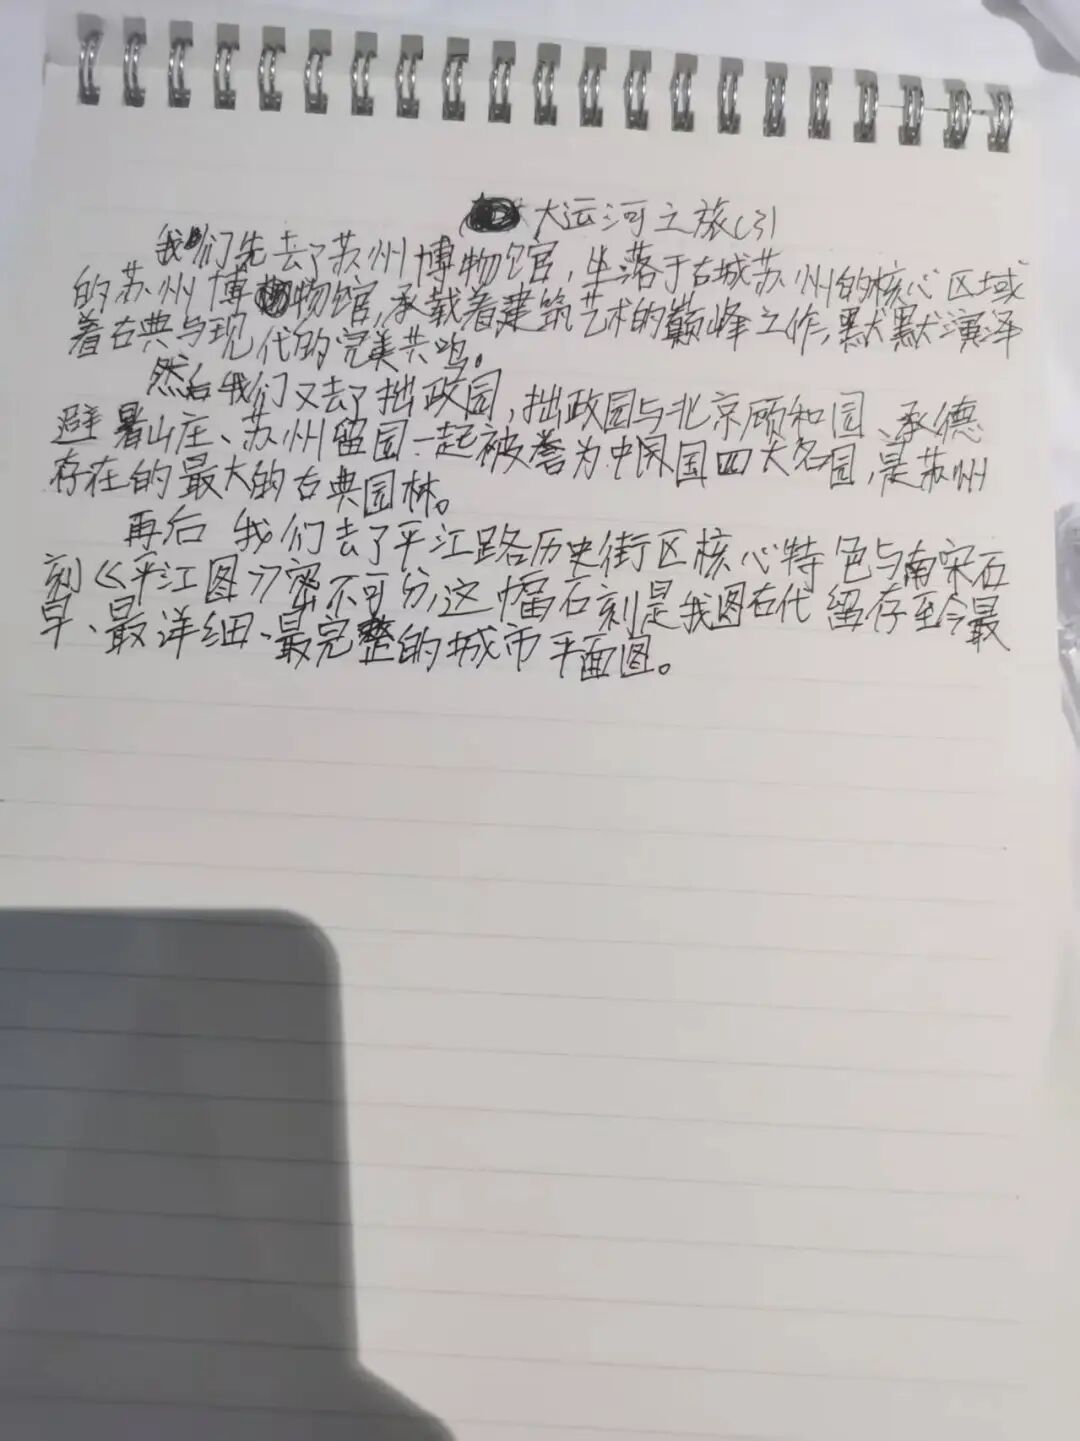 大运河之旅(3)
我们先去了苏州博物馆，坐落于古城苏州的核心区域
的苏州博物馆，承载着建筑艺术的巅峰之作，默默演泽
着古典与现代的完美共鸣。
然后我们又去了拙政园，拙政园与北京颐和园、承德
避暑山庄、苏州留园一起被誉为中国四大名园，是苏州
存在的最大的古典园林。
再后我们去了平江路历史街区核心特色与南宋石
刻《平江图》密不可分，这幅石刻是我图古代留存至今最
早、最详细、最完整的城市平面图。